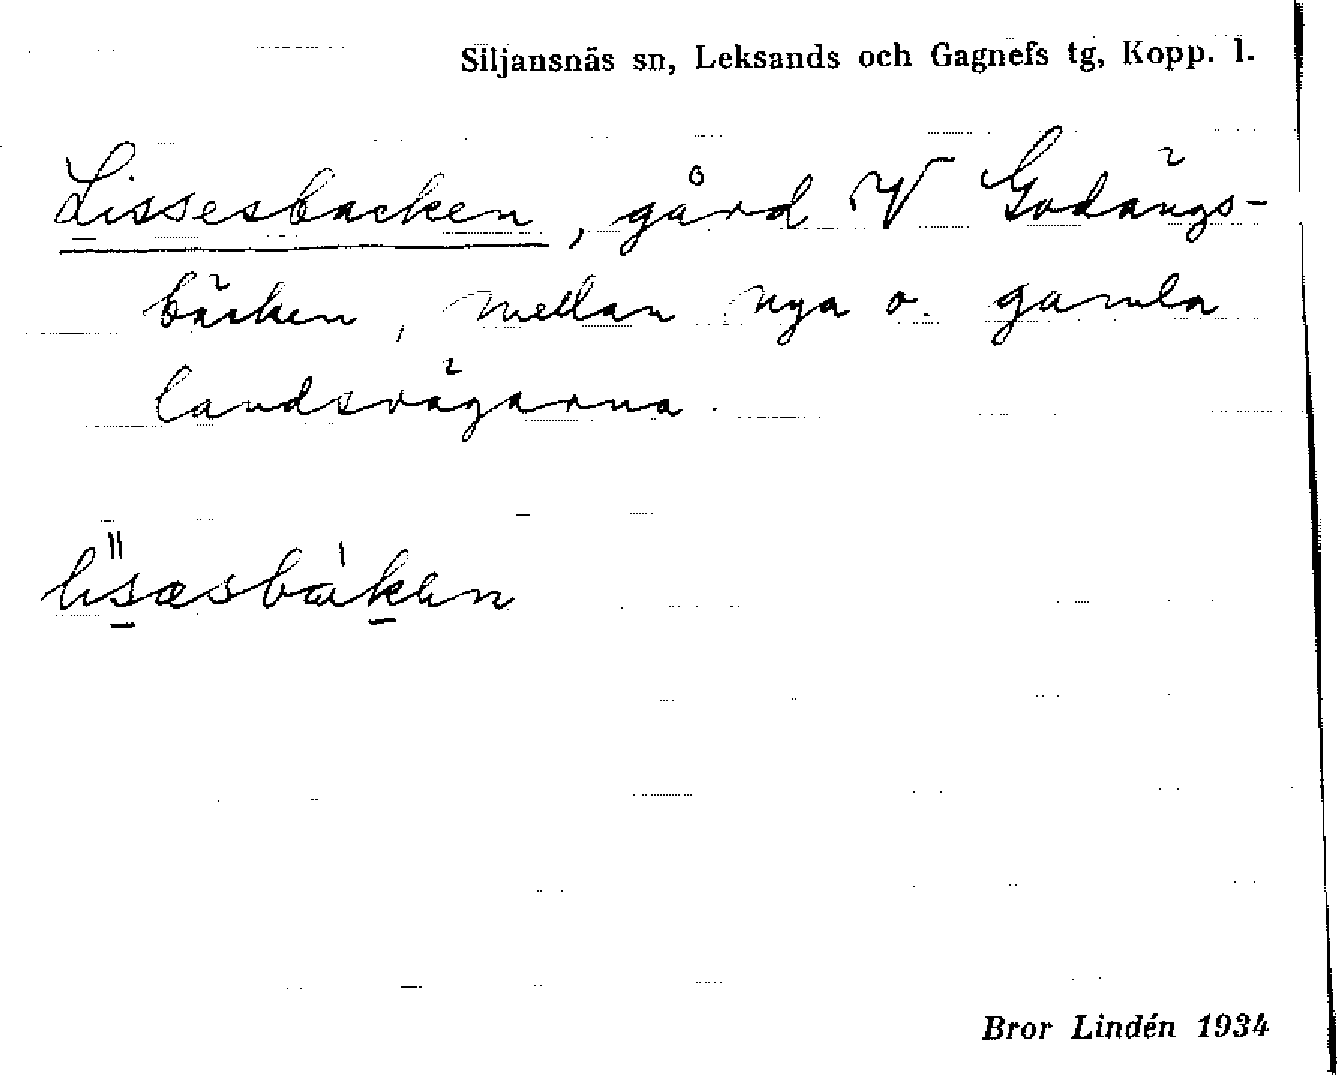 Siljansnäs sn, Leksands och Gagnefs tg, Kopp. l.
Lissesbacken, gård V Godängs-
bäcken, mellan nya o. gamla
landsvägarna.
Bror Lindén 1934